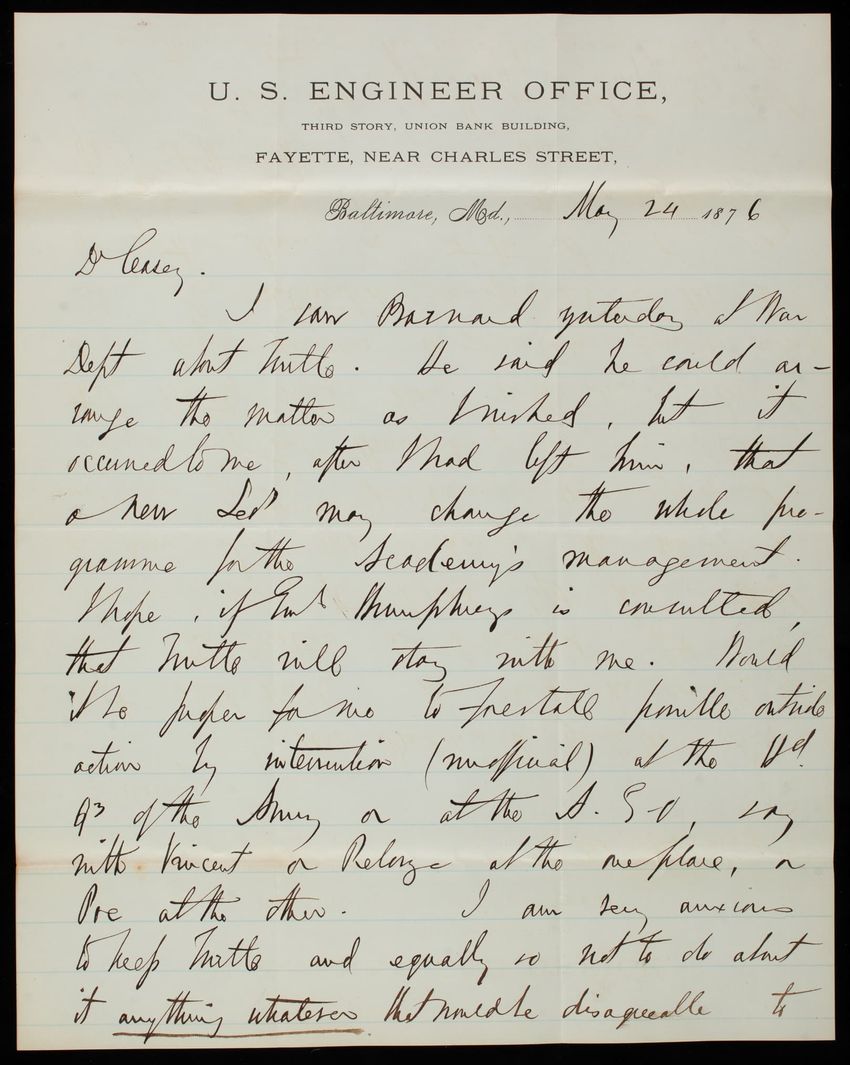 U. S. ENGINEER OFFICE,
THIRD STORY, UNION BANK BUILDING,
FAYETTE, NEAR CHARLES STREET,
Baltimore, Md., May 24 1876
Dr Casey.
I saw Barnard yesterday at War
Dept about Turtle. He said he could ar-
range the matter as I wished, but it
occurred to me, after I had left him, that
a new Secy may change the whole pro-
gramme for the Academy's management.
I hope, if Genl Humphreys is consulted,
that Turtle will stay with me. Would
it be proper for me to forestall possible outside
action by intervention (unofficial) at the Hd.
Qrs of the Army or at the A. G. O, say
with Vincent or Relyea at the one place, or
Poe at the other. I am very anxious
to keep Turtle and equally so not to do about
it anything whatever that would be disagreeable to